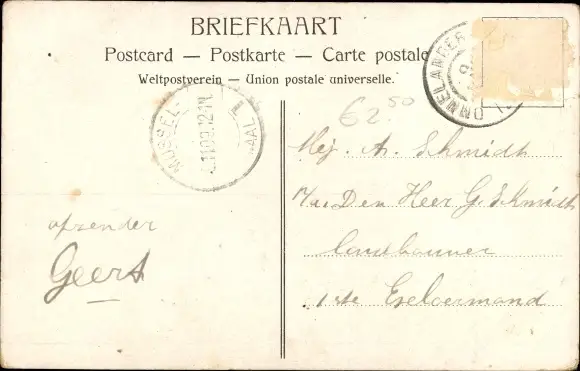 BRIEFKAART
Postcard — Postkarte — Carte postale
Weltpostverein — Union postale universelle.
62.50
MUSSEL-KANAAL
11 09.12-1N
ONNELANDER
Mej. A. Schmidt
p/a Den Heer G. Schmidt
landbouwer
1ste Exloërmond
afzender
Geert